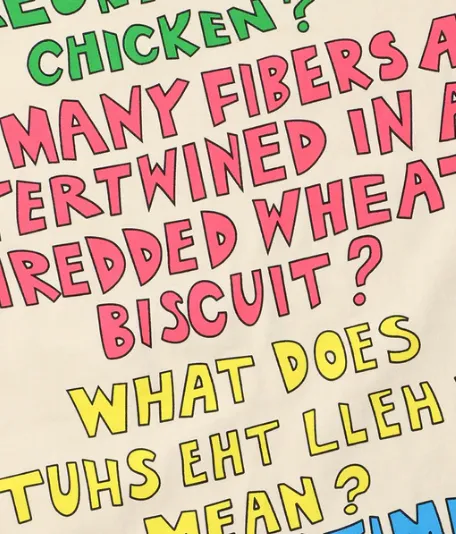 CHICKEN?
MANY FIBERS A
TERTWINED IN A
HREDDED WHEAT
BISCUIT?
WHAT DOES
TUHS EHT LLEH
MEAN?
TIM